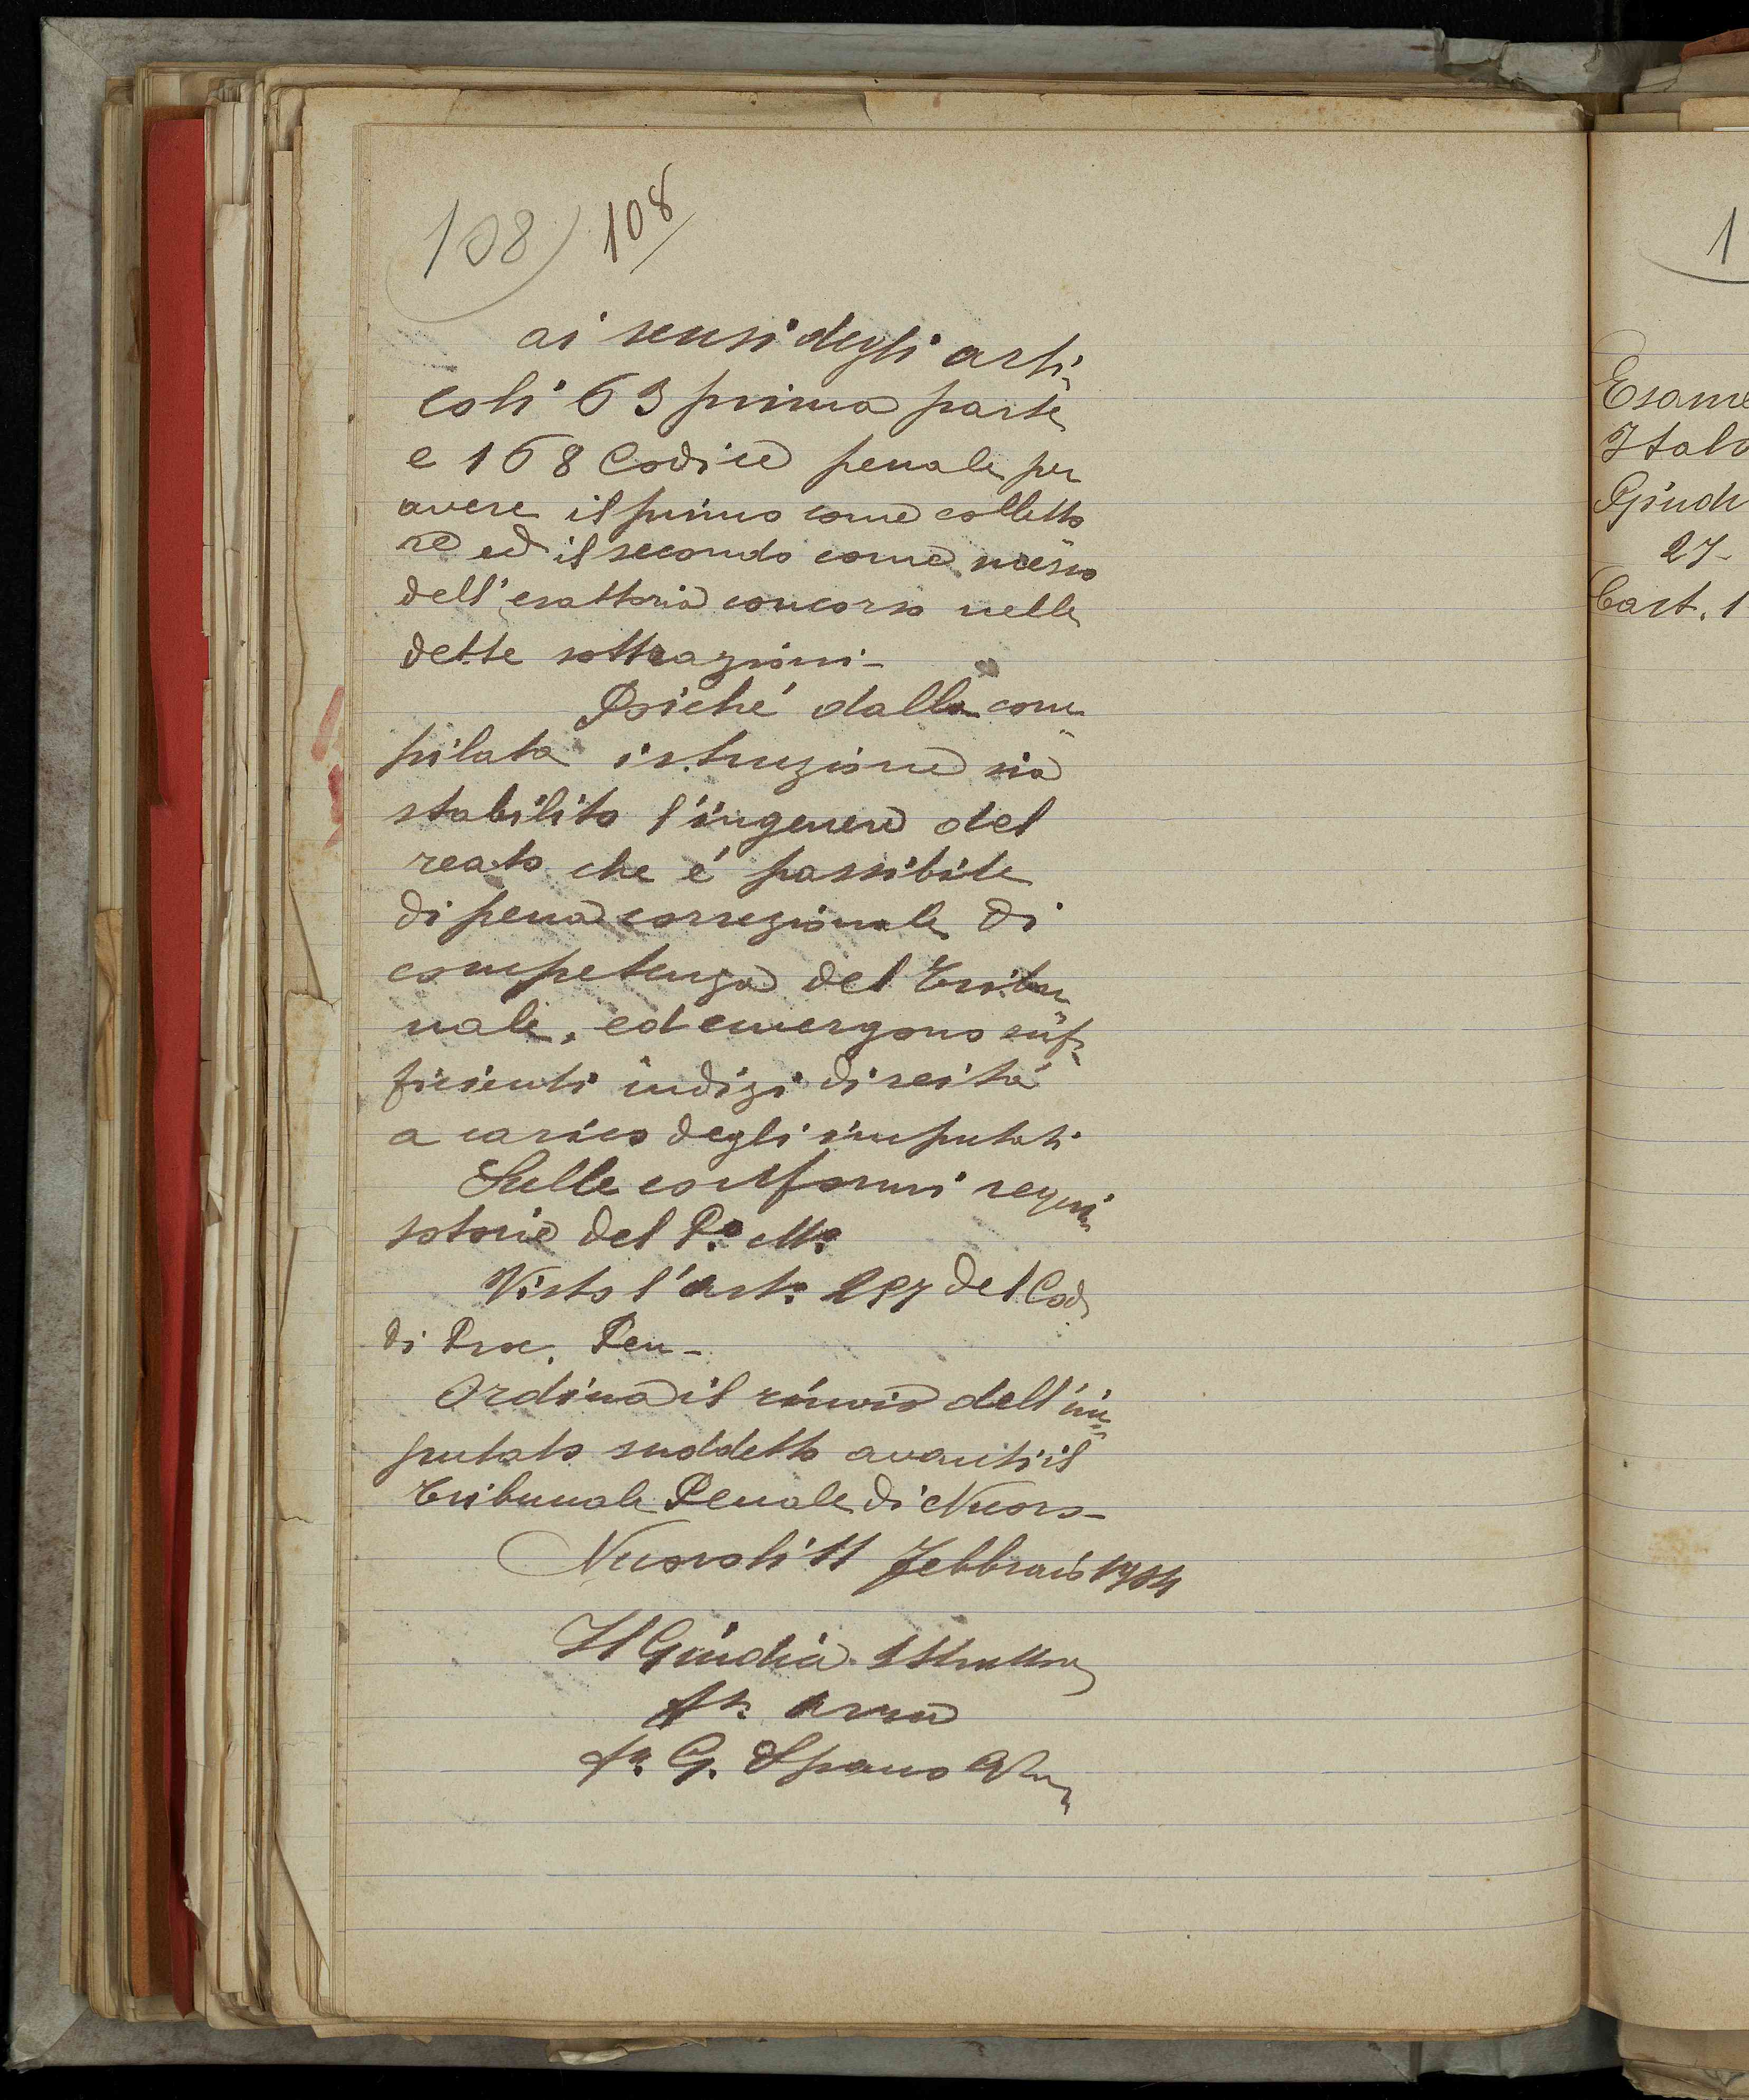 108) 108
ai sensi degli arti-
coli 63 prima parte
e 168 Codice penale per
avere il primo come colletto
re ed il secondo come messo
dell'esattoria concorso nelle
dette sottrazioni-
Poiché dalla com
pilata istruzione sia
stabilito l'ingenere del
reato che é passibile
di pena correzionale di
competenza del Tribu
nale, ed emergono suf-
ficienti indizi di reitá
a carico degli imputati
Sulle conformi requi
sitorie del P.o M.o
Visto l'art: 257 del Cod
di Proc. Pen-
Ordina il rinvio dell'im-
putato suddetto avanti il
Tribunale Penale di Nuoro-
Nuoro li 11 Febbraio 1904
Il Giudice Istruttore
G. Spano
1
Esame
Italo
Giudi
27-
Cart. 1